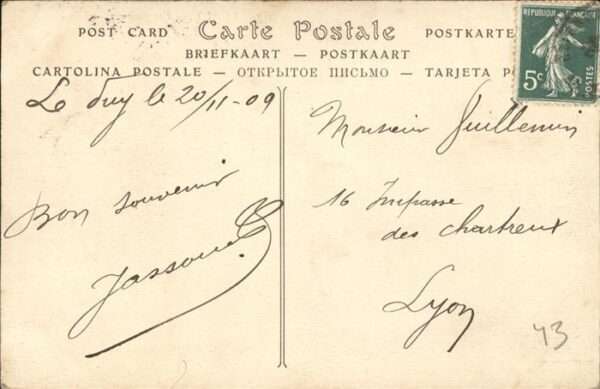 POST CARD Carte Postale POSTKARTE
BRIEFKAART — POSTKAART
CARTOLINA POSTALE — ОТКРЫТОЕ ПИСЬМО — TARJETA
RÉPUBLIQUE FRANÇAISE
5c
POSTES
Le Puy le 20/11-09
Bon souvenir
Monsieur Guillemin
16 Impasse
des chartreux
Lyon
43